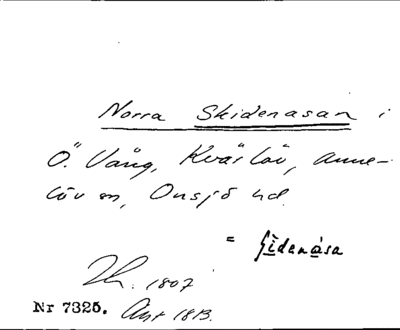 Norra Skidenasan i
Ö. Vång, Kvärlöv, Anne-
löv sn, Onsjö hd.
= ʃìdenàsa
Lh. 1807
Nr 7325. Avt 1813.